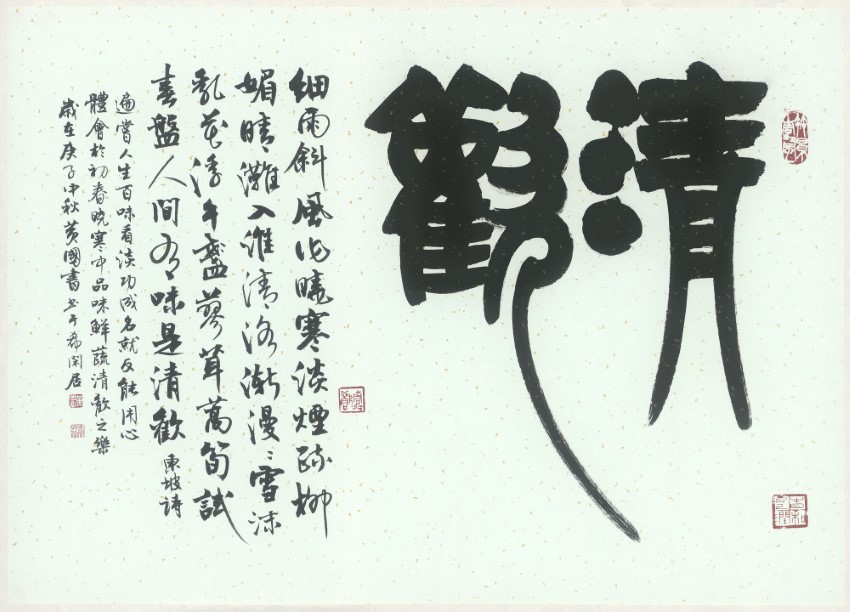 清歡
細雨斜風作曉寒淡煙疏柳
媚晴灘入淮清洛漸漫〻雪沫
乳花浮午盞蓼茸蒿筍試
春盤人間有味是清歡 東坡詩
遍嘗人生百味看淡功成名就反能用心
體會於初春曉寒中品味鮮蔬清歡之樂
歲在庚子中秋黃國書書于希閑居